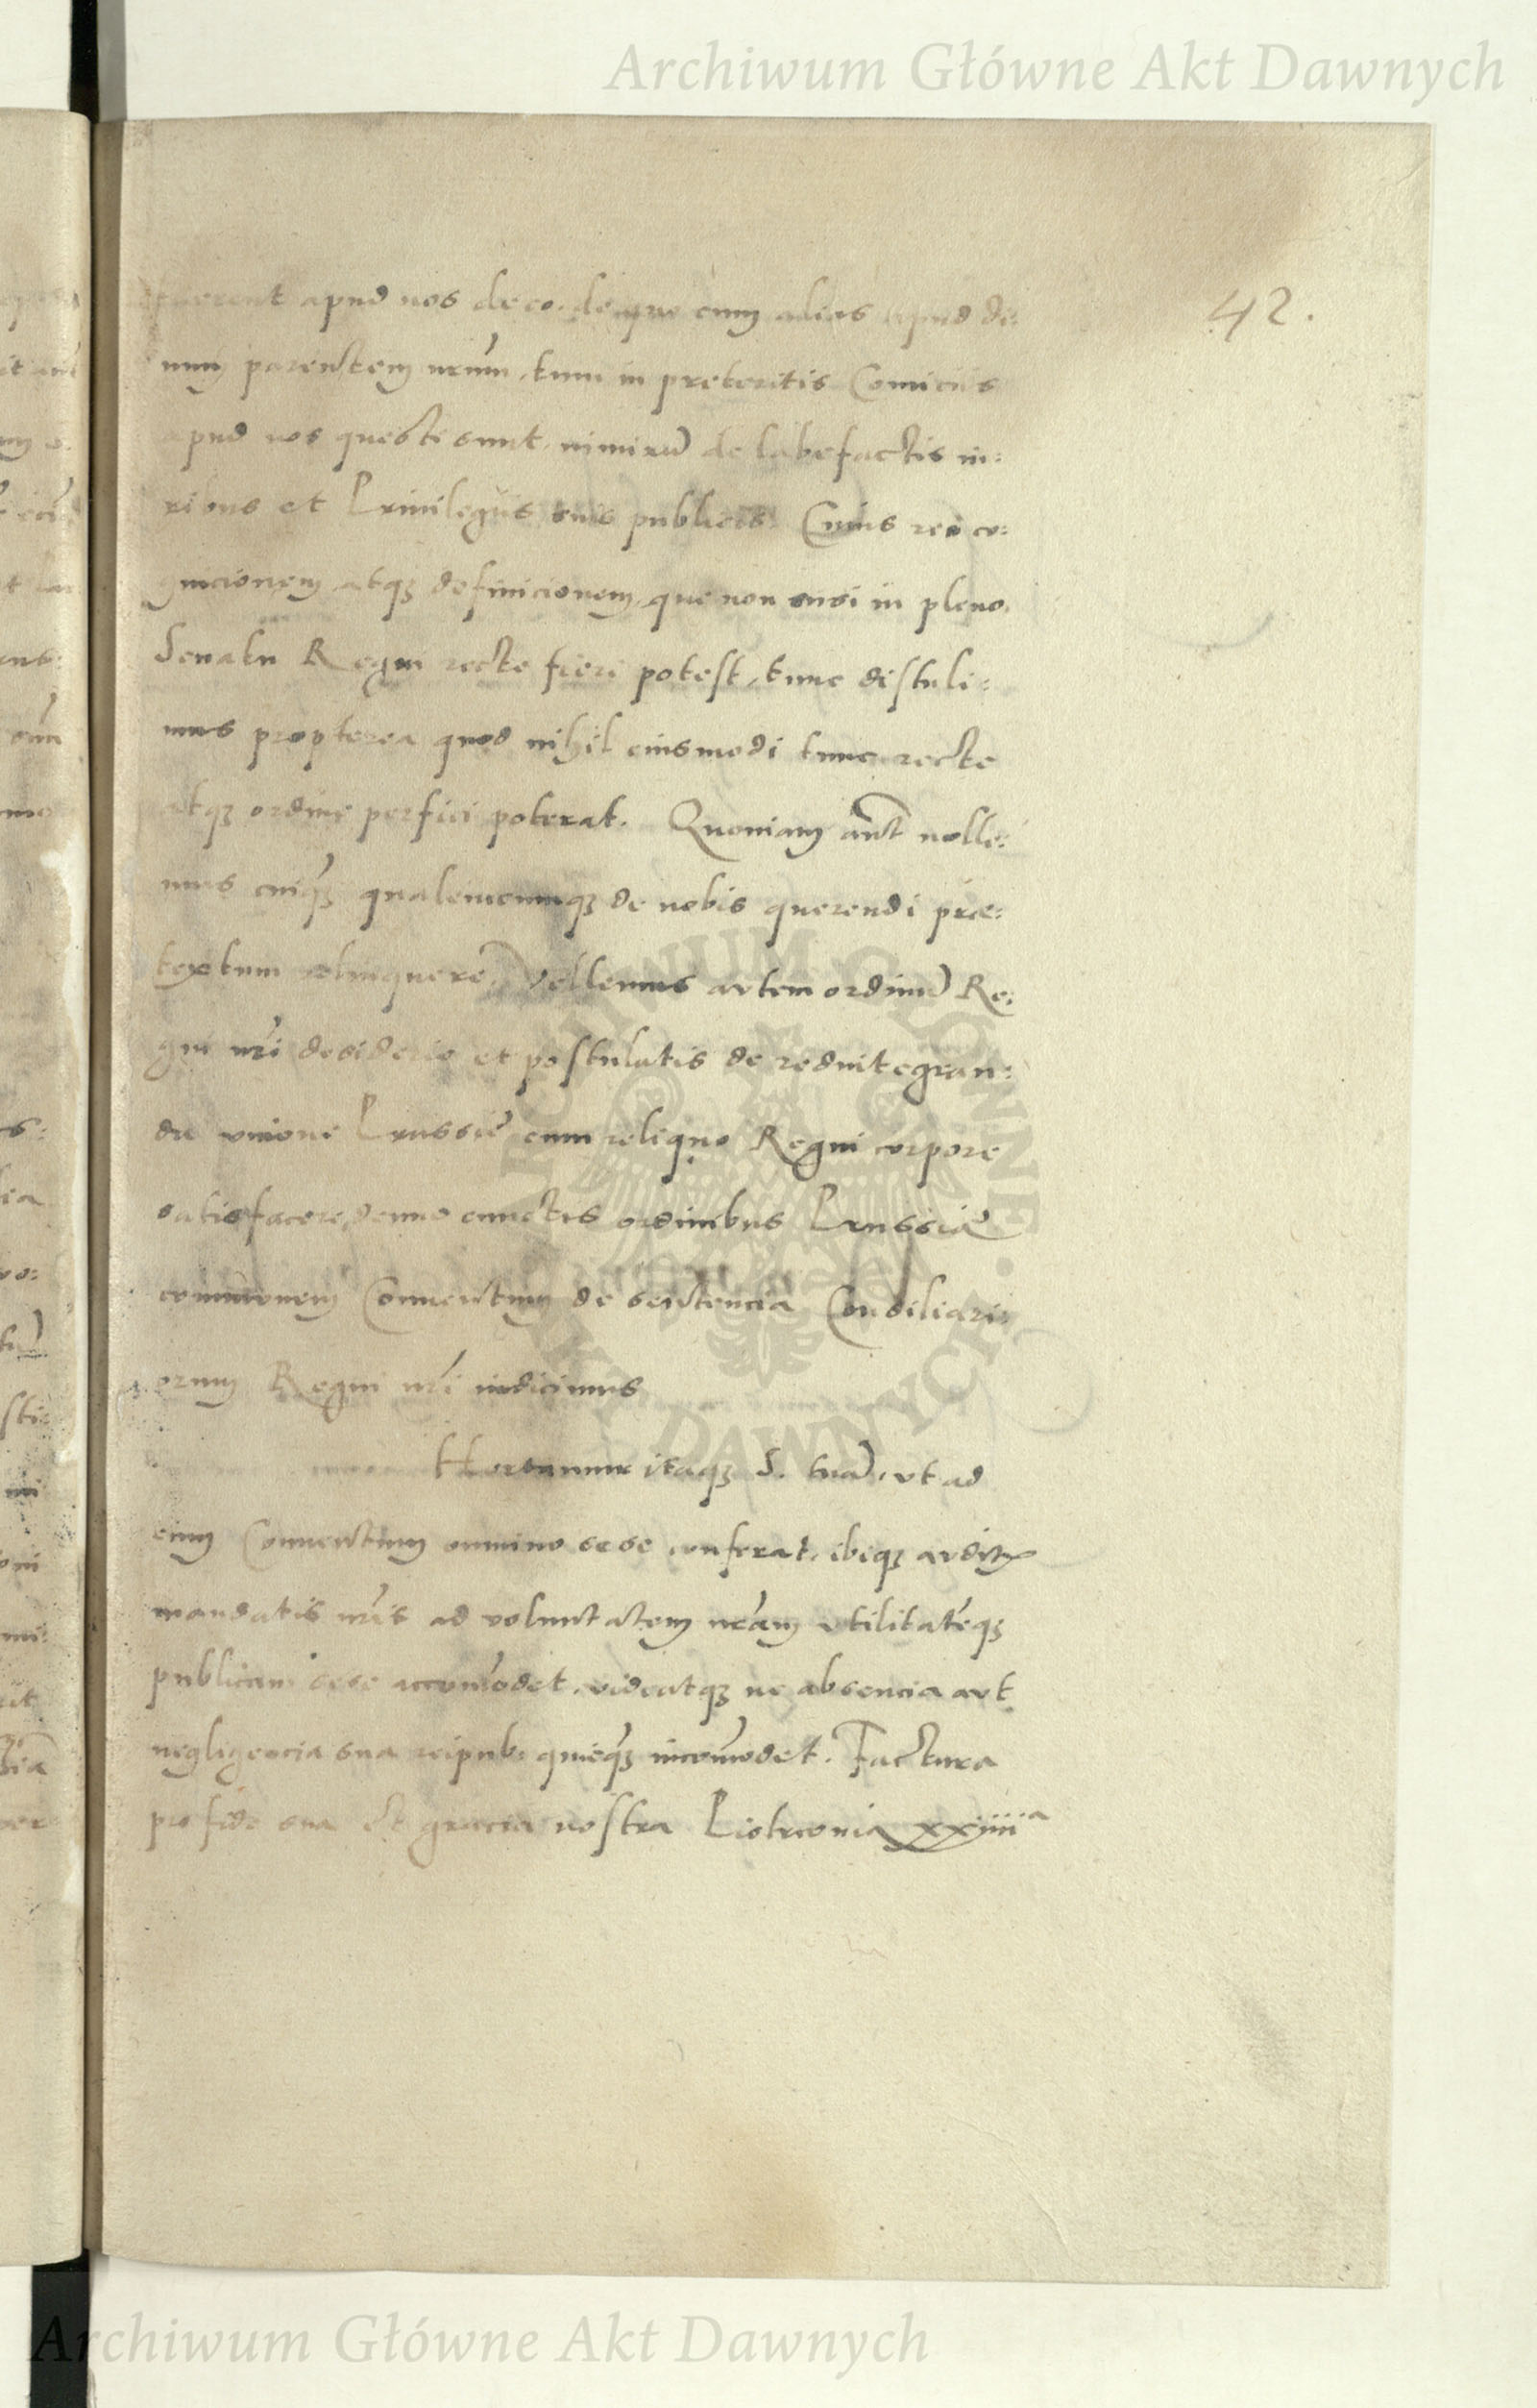 Archiwum Główne Akt Dawnych
42.
fuerent apud nos de eo, de quo cum alias apud di:
uum parentem nrum, tum in preteritis Comiciis
apud nos questi sunt, nimirum de labefactis iu:
ribus et Priuilegiis suis publicis. Cuius rei co:
gnicionem atq3 definicionem, que non nisi in pleno
Senatu Regni recte fieri potest, tunc distuli:
mus propterea quod nihil eiusmodi tunc recte
atq3 ordine perfici poterat. Quoniam aut nolle:
mus cuiq3 qualemcunq3 de nobis querendi præ:
textum relinquere, Vellemus autem ordinum Re:
gni nri desiderio et postulatis de redintegran:
da vnione Prussie cum reliquo Regni corpore
satisfacere, denuo cunctis ordinibus Prussiæ
communem Conuentum de sentencia Consiliari:
orum Regni nri indicimus
Hortamur itaq3 S. tuam, vt ad
eum Conuentum omnino sese conferat, ibiq3 auditis
mandatis nris ad voluntatem nram vtilitateq3
publicam sese accomodet, videatq3 ne absencia aut
negligencia sua reipub: quicq3 incomodet. Factura
pro fide sua et gracia nostra Piotrconia xxiiii a
ARCHIWUM GŁÓWNE AKT DAWNYCH
Archiwum Główne Akt Dawnych